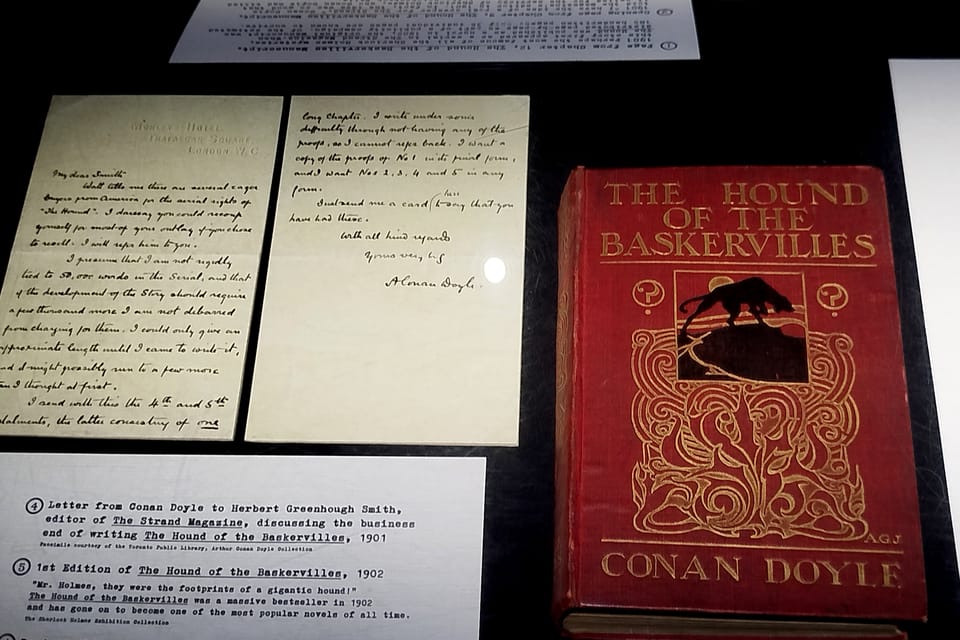 ① Page from Chapter The Hound of the Baskervilles Manuscript,
1901
MORLEY'S HOTEL,
TRAFALGAR SQUARE,
LONDON. W.C.
My dear Smith
Watt tells me there are several eager
buyers from America for the serial rights of
"The Hound". I daresay you could recoup
yourself for most of your outlay if you chose
to resell. I will refer him to you.
I presume that I am not rigidly
tied to 50,000 words in the Serial, and that
if the development of the Story should require
a few thousand more I am not debarred
from charging for them. I could only give an
approximate length until I came to write it,
and I might possibly run to a few more
than I thought at first.
I send with this the 4th and 5th
instalments, the latter consisting of one
long chapter. I write under some
difficulty through not having any of the
proofs, so I cannot refer back. I want a
copy of the proofs of No 1 in its final form,
and I want Nos 2, 3, 4 and 5 in any
form.
Just send me a card (here) to say that you
have had these.
With all kind regards
Yours very truly
A Conan Doyle.
④ Letter from Conan Doyle to Herbert Greenhough Smith,
editor of The Strand Magazine, discussing the business
end of writing The Hound of the Baskervilles, 1901
Facsimile courtesy of the Toronto Public Library, Arthur Conan Doyle Collection
⑤ 1st Edition of The Hound of the Baskervilles, 1902
"Mr. Holmes, they were the footprints of a gigantic hound!"
The Hound of the Baskervilles was a massive bestseller in 1902
and has gone on to become one of the most popular novels of all time.
The Sherlock Holmes Exhibition Collection
THE HOUND
OF THE
BASKERVILLES
? ?
A.G.J.
CONAN DOYLE